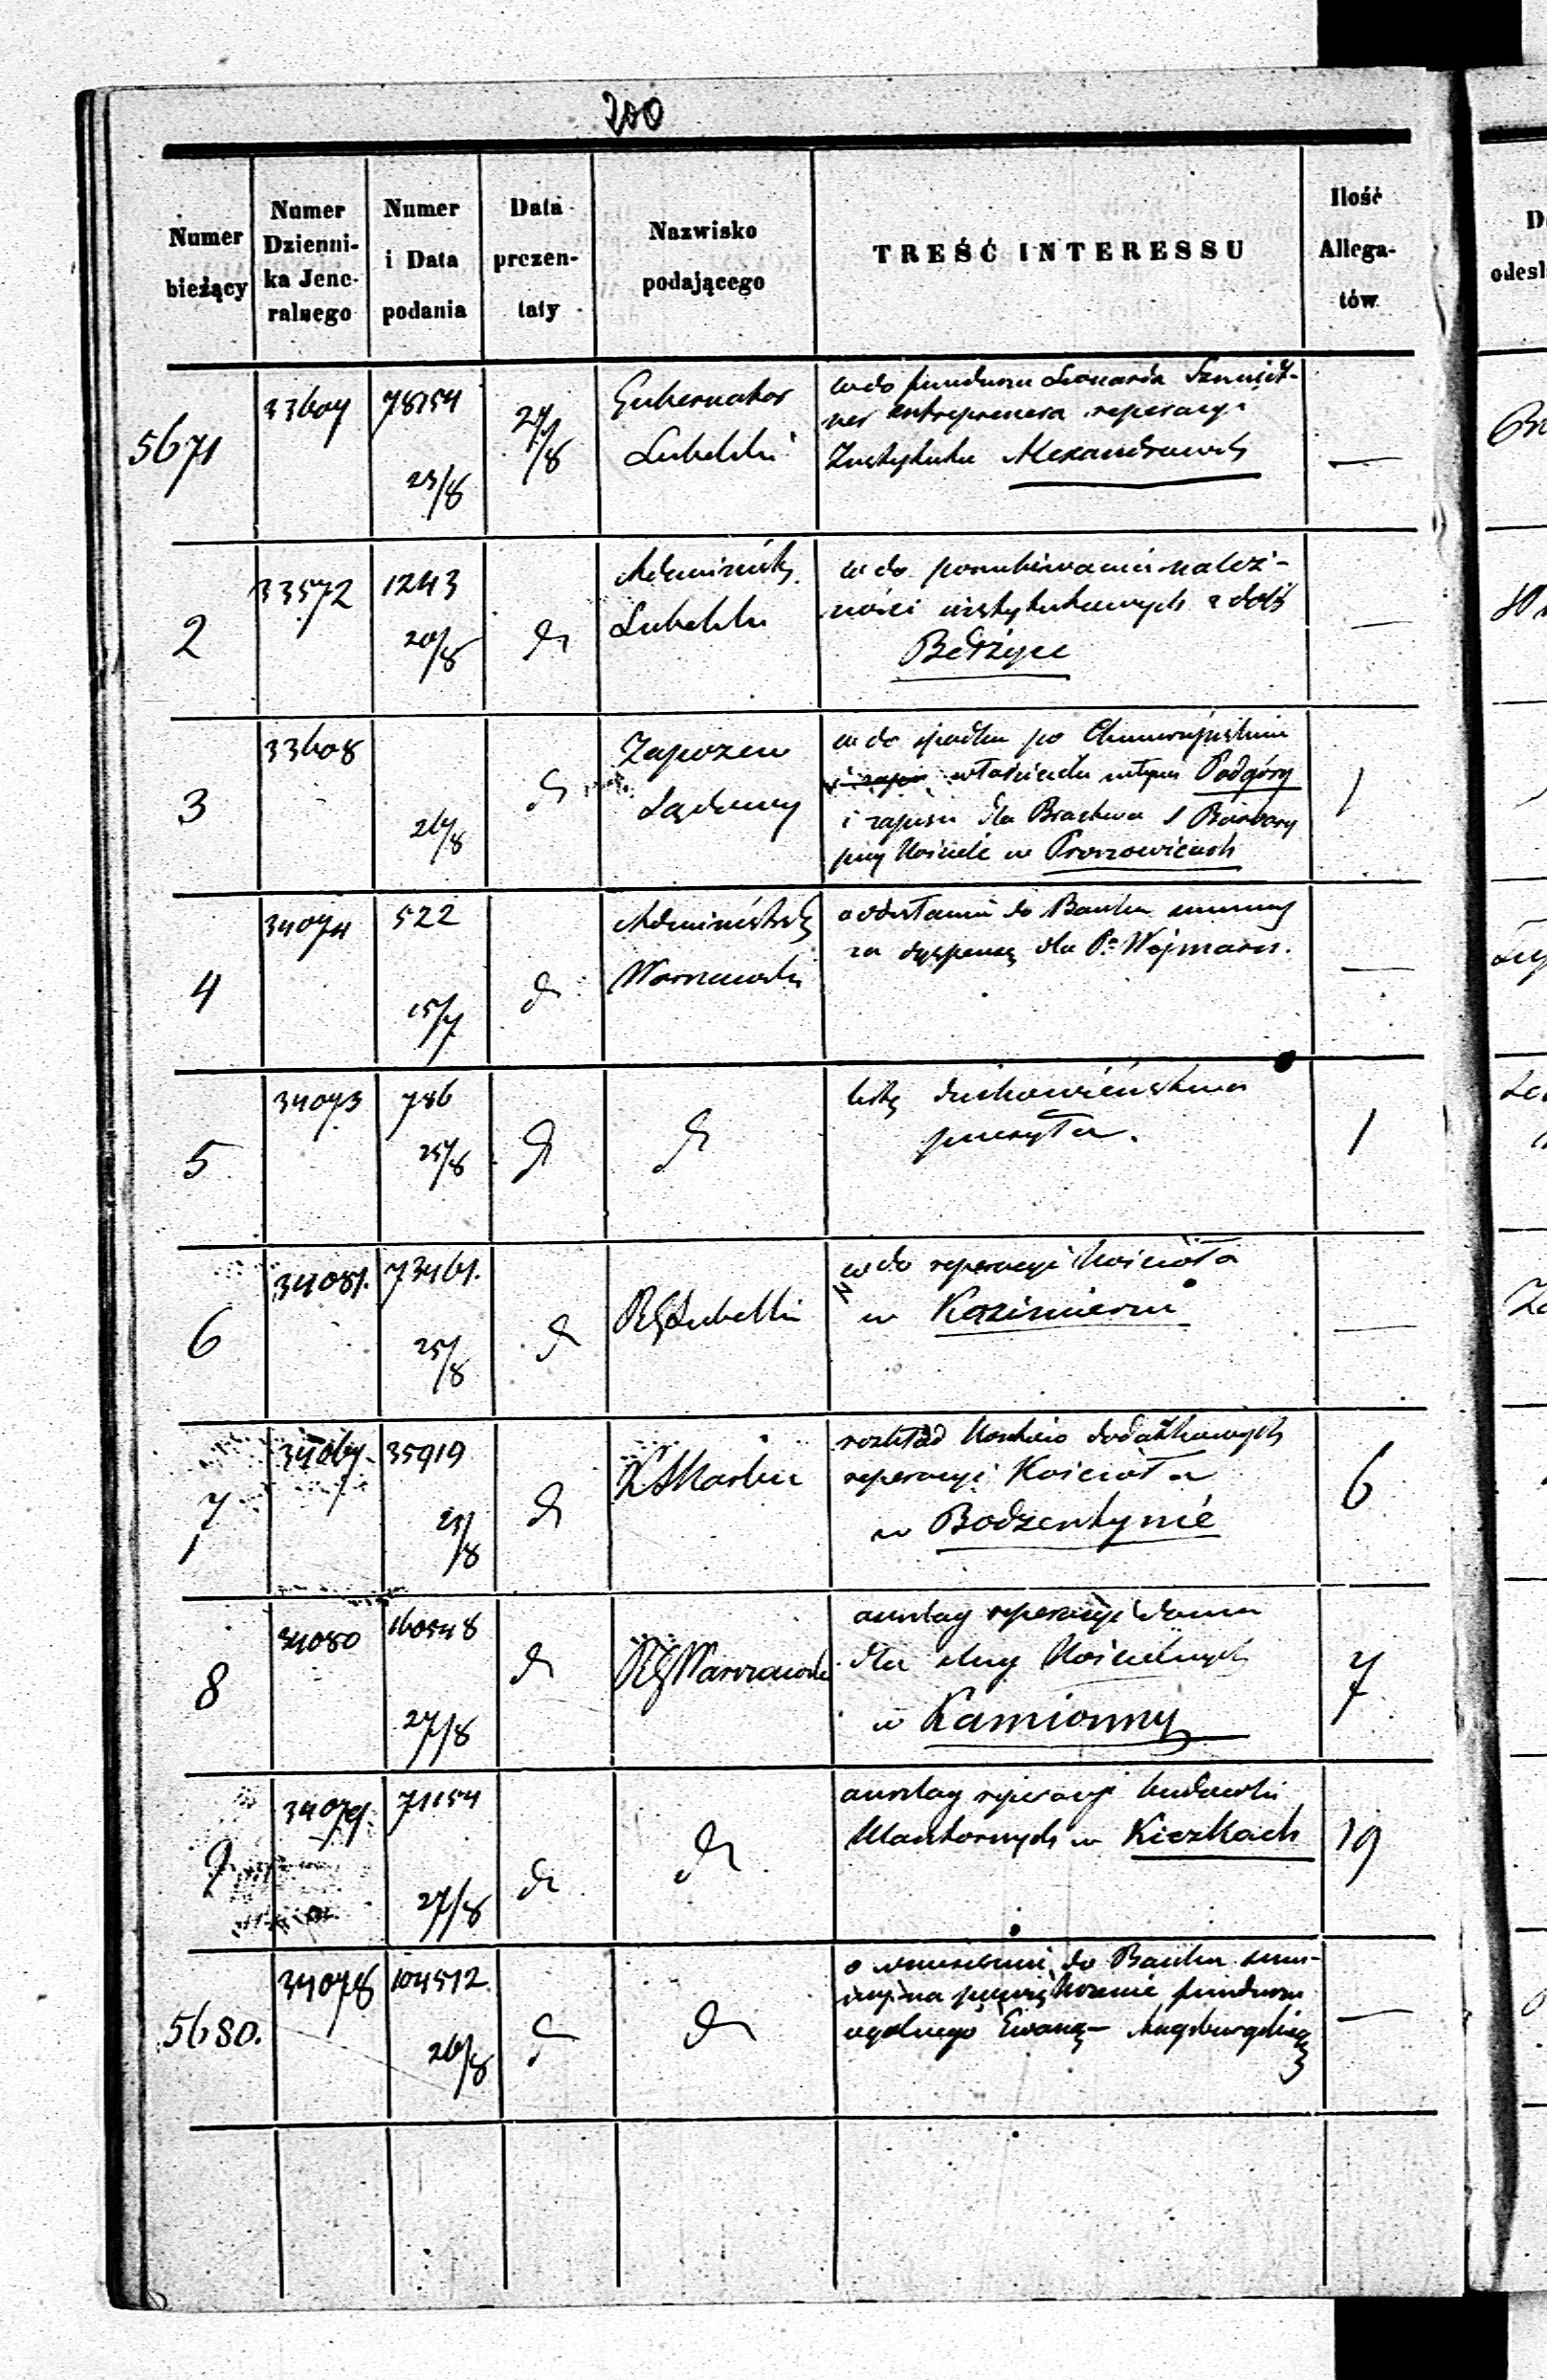 200
Numer bieżący
Numer Dzienni- ka Jene- ralnego
Numer i Data podania
Data prezen- taty
Nazwisko podającego
TREŚĆ INTERESSU
Ilość Allega- tów
5671
33604
78154
23/8
27/8
Gubernator
Lubelski
wdo funduszu Leonarda
entreprenera reperacyi
Instytutu Alexandrowsk
—
2
33572
1243
20/8
dt
Administr.
Lubelski
w do należi-
ności instytutowych z dóbr
Bełżyce
—
3
33608
26/8
dt
Zapozew
Sądowy
w do spadku po
właścicielu młyna Podgóry
i zapisu dla Bractwa S Barbary
przy kościele w Proszowicach
1
4
34074
522
15/7
dt
Administr
Warszawski
o odesłaniu do Banku summy
za dyspensę dla P. Wejmara.
—
5
34073
786
25/8
dt
dt
listę duchowieństwa
przesyła.
1
6
34081.
73461.
25/8
dt
RGLubelski
wdo reperacyi kościoła
w Kazimierzu
—
7
34067
35919
21/8
dt
KSkarbu
rozkład kosztów dodatkowych
reperacyi Kościoła
w Bodzentynie
6
8
34080
160548
27/8
dt
RGWarszawski
anszlag reperacyi domu
dla sług kościelnych
w Kamionny
7
9
34079
71154
27/8
dt
dt
anszlag reperacyi budowli
klasztornych w Kiezkach
19
5680.
34078
104512
26/8
dt
dt
o wniesieniu do Banku sum-
my na powiększenie funduszu
ogólnego Ewang- Augsburgskiego
—